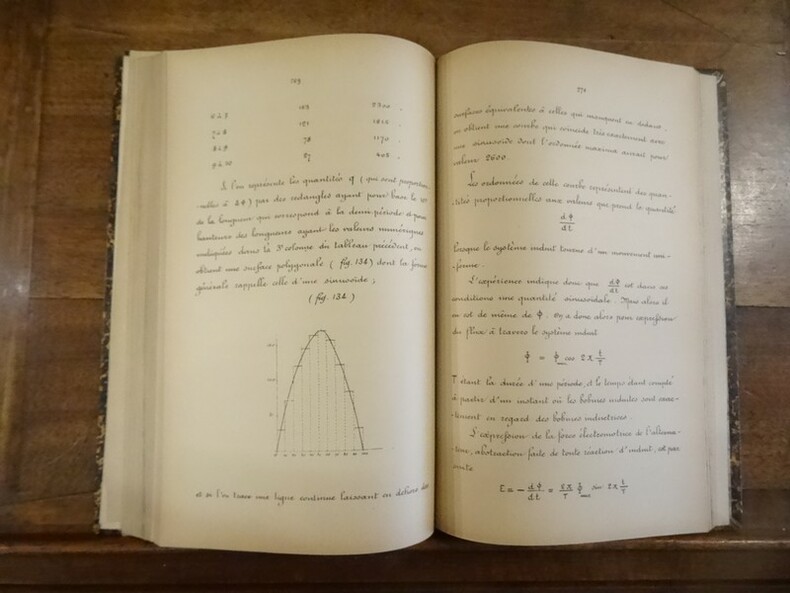 269
6 à 7 153 2300 "
7 à 8 121 1815 "
8 à 9 78 1170 "
9 à 10 27 405 "
Si l'on représente les quantités q (qui sont proportion-
-nelles à ΔΦ) par des rectangles ayant pour base le 10e
de la longueur qui correspond à la demi-période et pour
hauteur des longueurs ayant les valeurs numériques
indiquées dans la 3e colonne du tableau précédent, on
obtient une surface polygonale (fig. 134) dont la forme
générale rappelle celle d'une sinusoïde ;
(fig. 134)
et si l'on trace une ligne continue laissant en dehors des
270
surfaces équivalentes à celles qui manquent en dedans,
on obtient une courbe qui coïncide très exactement avec
une sinusoïde dont l'ordonnée maxima aurait pour
valeur 2600
Les ordonnées de cette courbe représentent des quan-
-tités proportionnelles aux valeurs que prend la quantité
dΦ/dt
lorsque le système induit tourne d'un mouvement uni-
-forme.
L'expérience indique donc que dΦ/dt est dans ces
conditions une quantité sinusoïdale. Mais alors il
en est de même de Φ. On a donc alors pour expression
du flux à travers le système induit
Φ = Φ cos 2π t/T
T étant la durée d'une période, et le temps étant compté
à partir d'un instant où les bobines induites sont exac-
-tement en regard des bobines inductrices.
L'expression de la force électromotrice de l'alterna-
-teur, abstraction faite de toute réaction d'induit, est par
suite
E = - dΦ/dt = 2π/T Φ sin 2π t/T